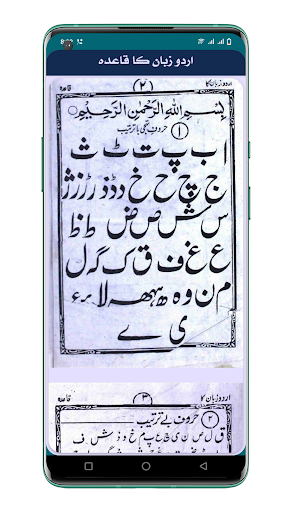 اردو زبان کا قاعدہ
اردو زبان کا (۲) قاعدہ
بِسْمِ اللهِ الرَّحْمٰنِ الرَّحِيْمِ
۱ حروف تہجی با ترتیب
ا ب پ ت ٹ ث
ج چ ح خ د ڈ ذ ر ڑ ز ژ
س ش ص ض ط ظ
ع غ ف ق ک گ ل
م ن و ہ ھ لا ء
ی ے
اردو زبان کا (۳) قاعدہ
۲ حروف بے ترتیب